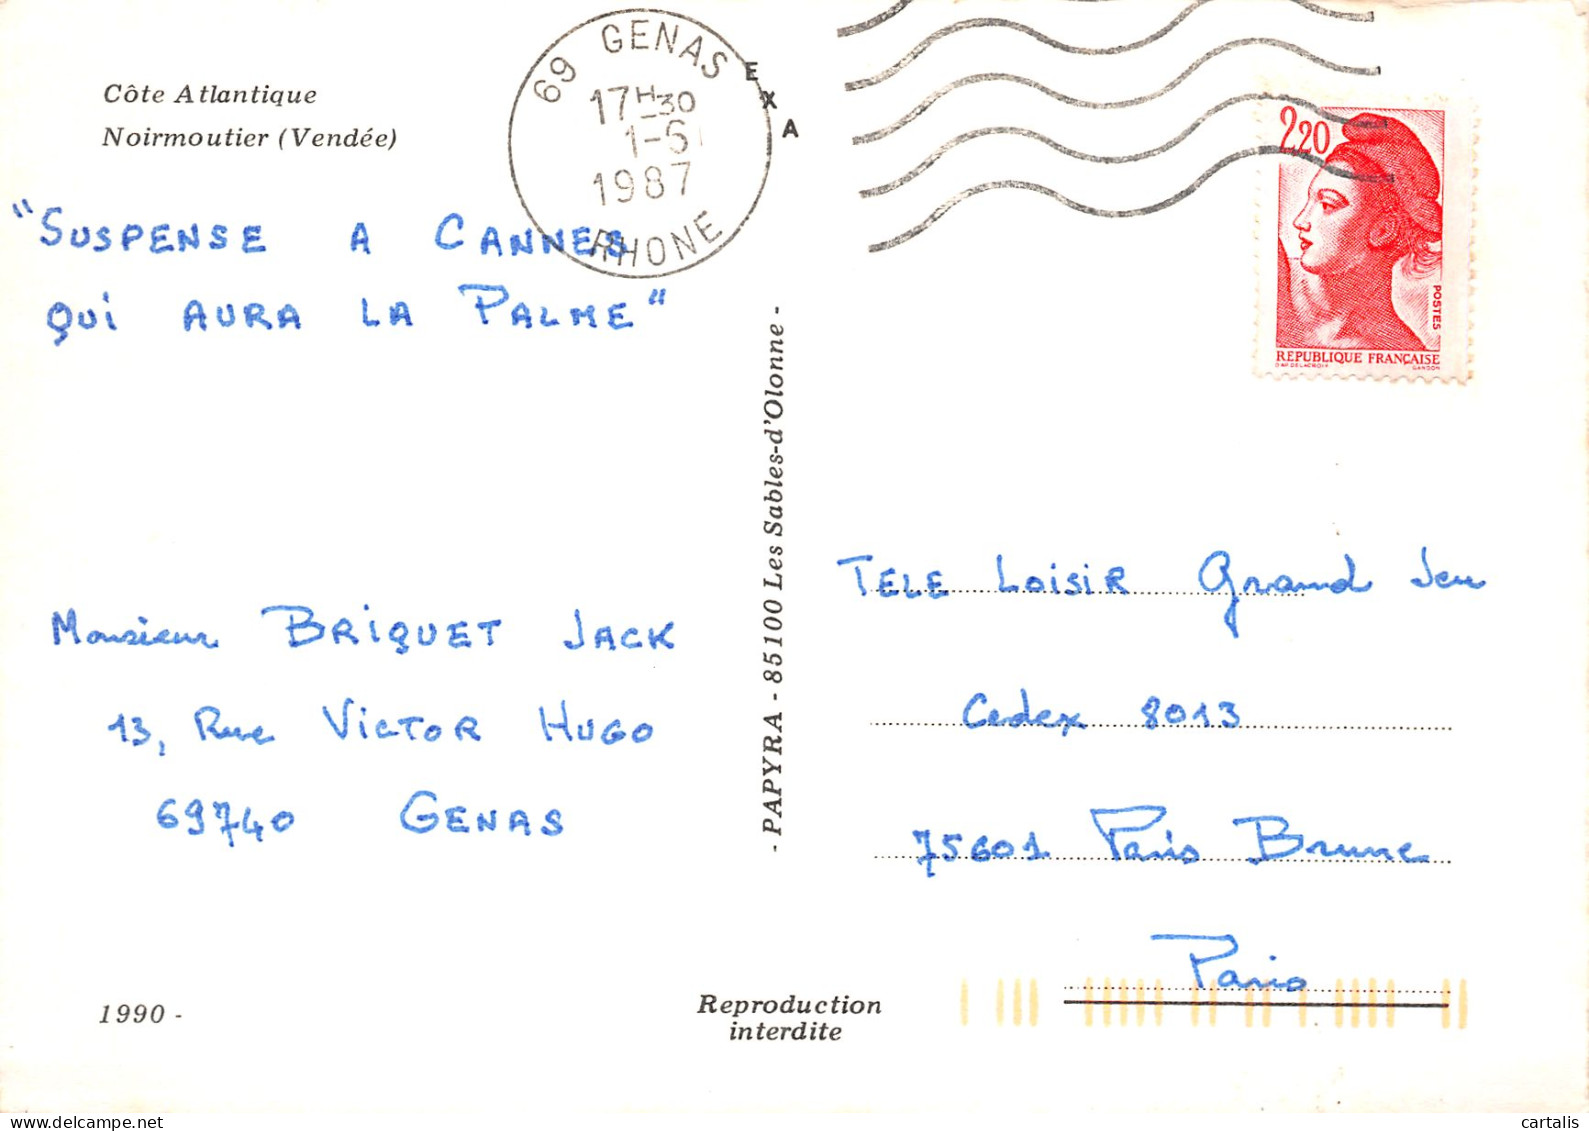 Côte Atlantique
Noirmoutier (Vendée)
69 GENAS
17H30
1-6
1987
RHONE
EXA
2,20
POSTES
REPUBLIQUE FRANÇAISE
D'AP. DELACROIX GANDON
"SUSPENSE A CANNES
QUI AURA LA PALME"
Monsieur BRIQUET JACK
13, Rue VICTOR HUGO
69740 GENAS
- PAPYRA - 85100 Les Sables-d'Olonne -
TELE LOISIR Grand Jeu
Cedex 8013
75601 Paris Brune
Paris
1990 -
Reproduction
interdite
www.cartalis.com
cartalis